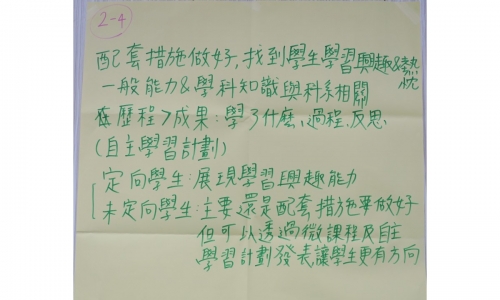 2-4
配套措施做好,找到學生學習興趣&熱忱
一般能力&學科知識與科系相關
歷程>成果:學了什麼、過程、反思、
(自主學習計劃)
定向學生:展現學習興趣能力
未定向學生:主要還是配套措施要做好
但可以透過微課程及自主
學習計劃發表,讓學生更有方向